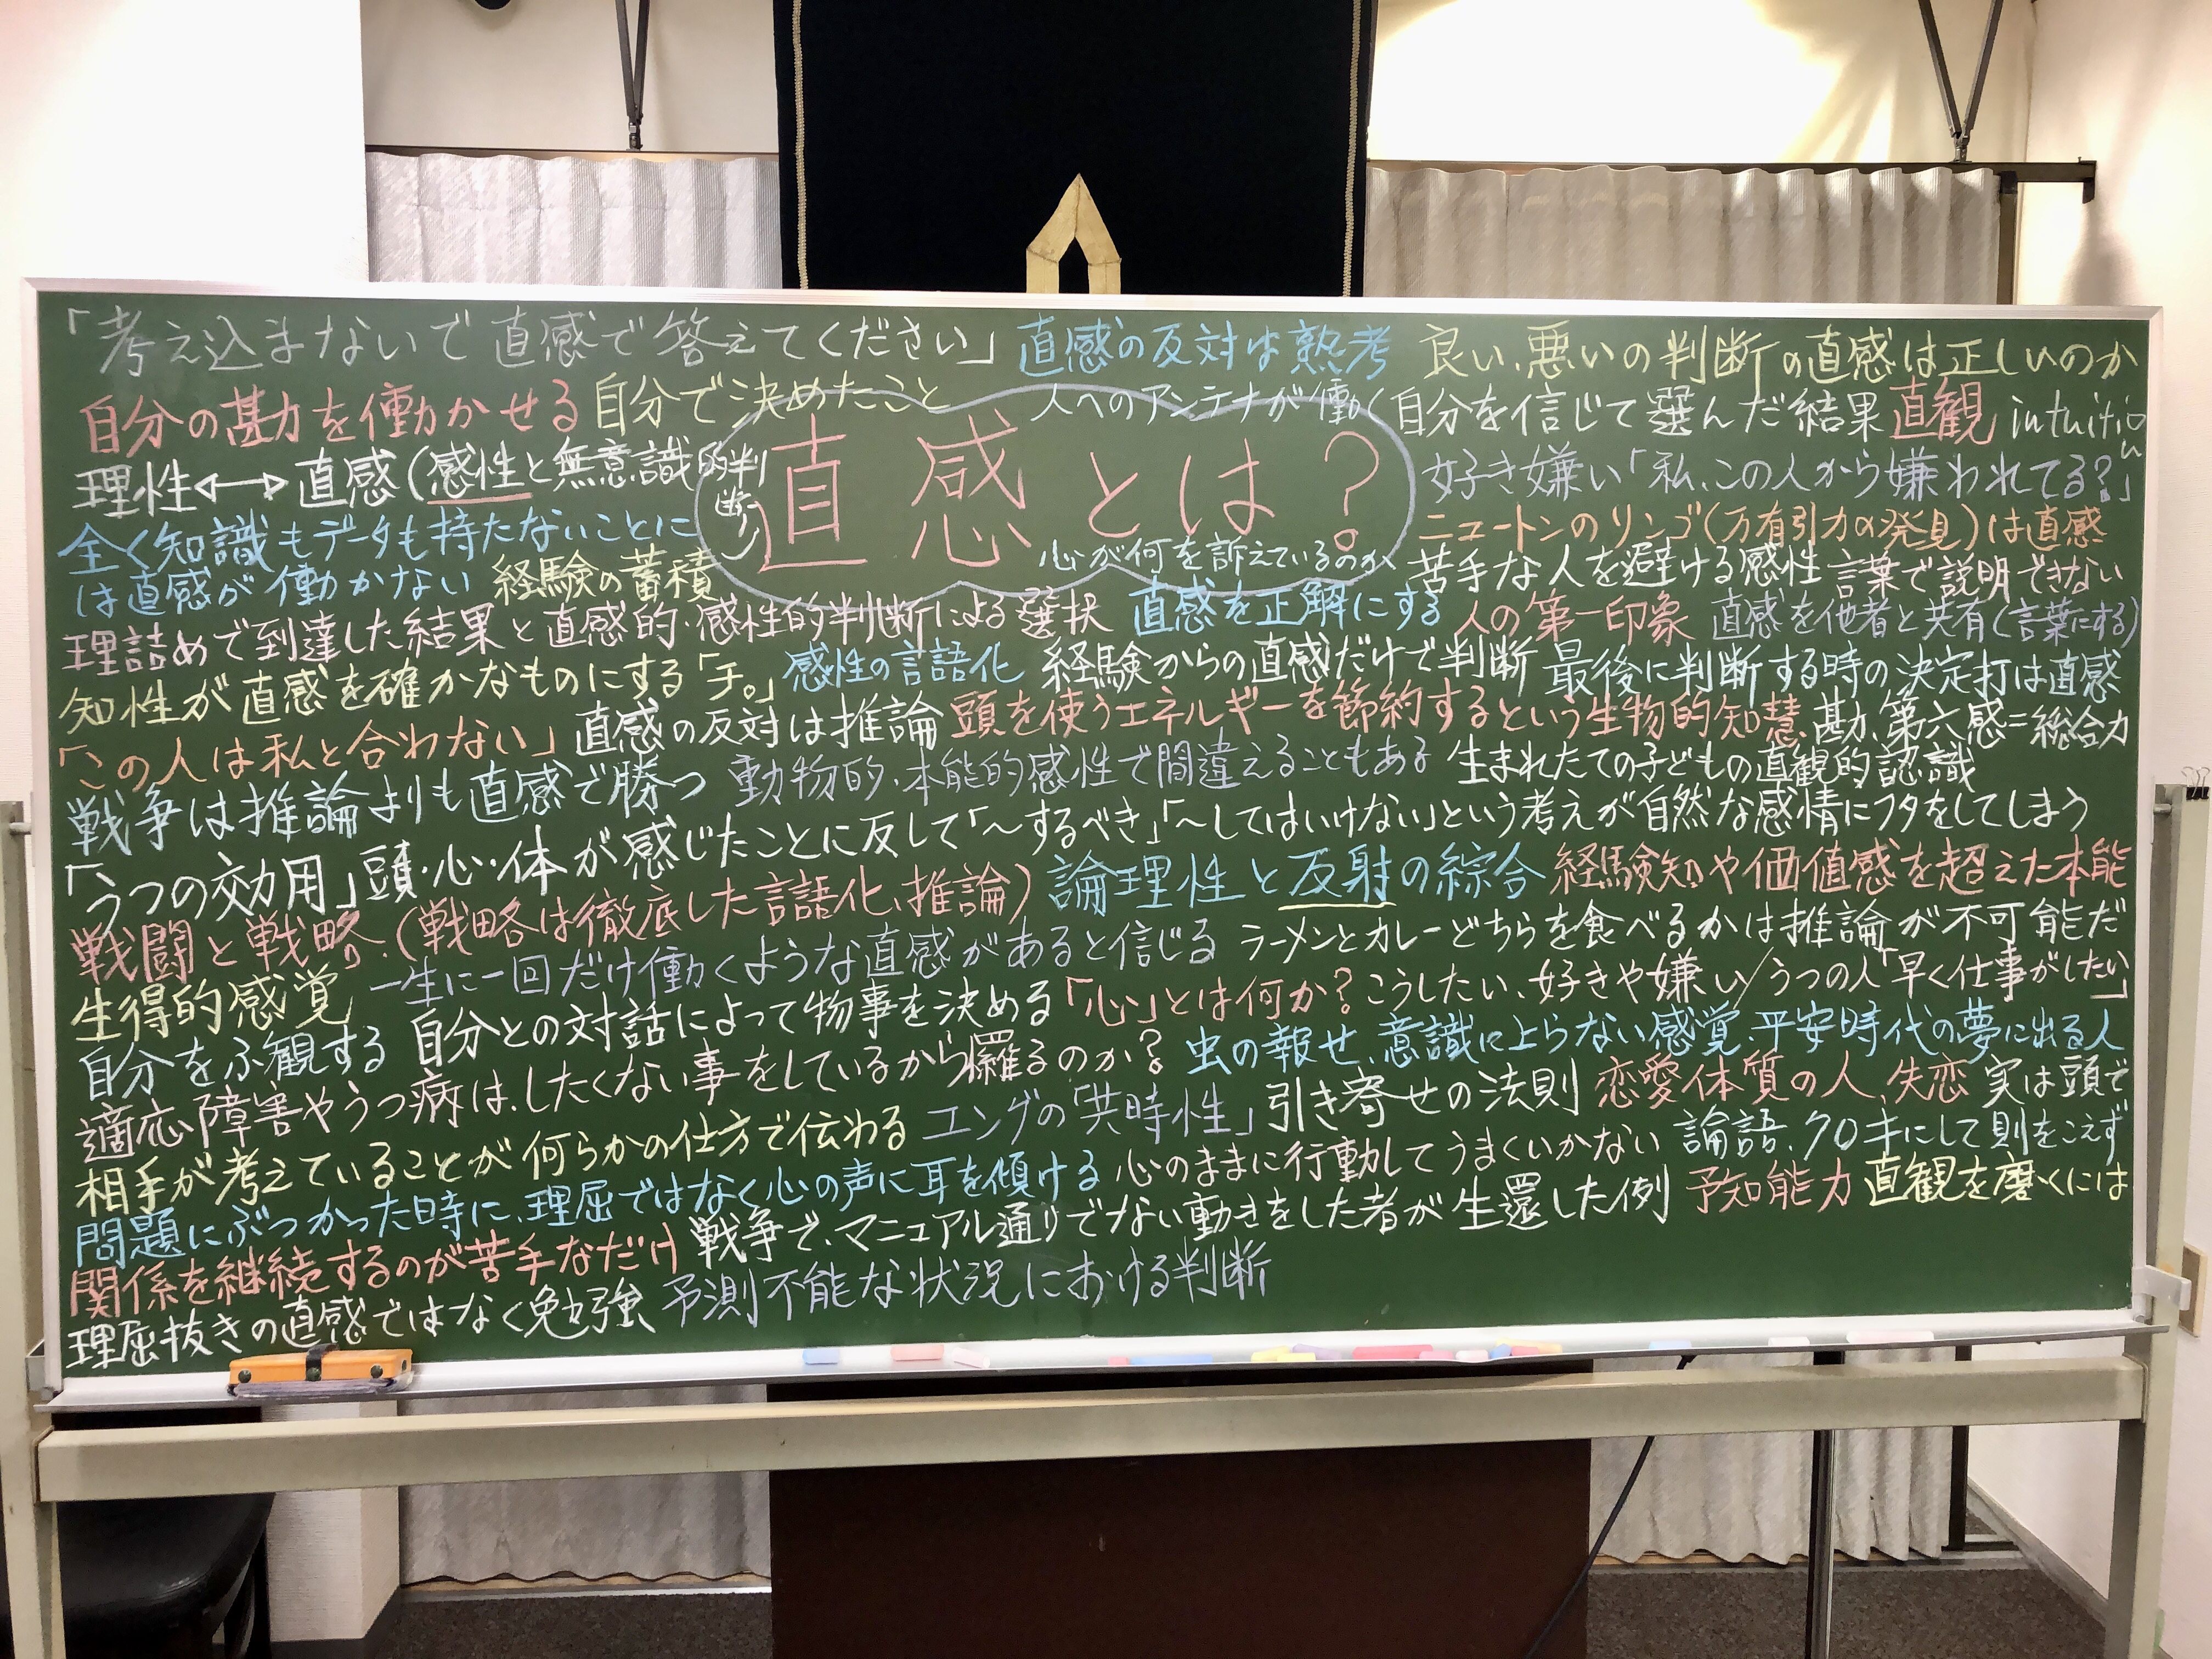 「考え込まないで直感で答えてください」 直感の反対は熟考 良い、悪いの判断の直感は正しいのか
自分の勘を働かせる 自分で決めたこと 人へのアンテナが働く 自分を信じて選んだ結果 直観 intuition
直感とは？
理性⟷直感(感性と無意識的判断) 好き嫌い「私、この人から嫌われてる？」
全く知識もデータも持たないことに ニュートンのリンゴ(万有引力の発見)は直感
は直感が働かない 経験の蓄積 心が何を訴えているのか 苦手な人を避ける感性 言葉で説明できない
理詰めで到達した結果と直感的・感性的判断による選択 直感を正解にする 人の第一印象 直感を他者と共有(言葉にする)
知性が直感を確かなものにする「チ。」 感性の言語化 経験からの直感だけで判断 最後に判断する時の決定打は直感
「この人は私と合わない」 直感の反対は推論 頭を使うエネルギーを節約するという生物的知慧 勘、第六感=総合力
戦争は推論よりも直感で勝つ 動物的・本能的感性で間違えることもある 生まれたての子どもの直観的認識
「うつの効用」頭・心・体が感じたことに反して「～するべき」「～してはいけない」という考えが自然な感情にフタをしてしまう
戦闘と戦略・(戦略は徹底した言語化、推論) 論理性と反射の綜合 経験知や価値感を超えた本能
生得的感覚 一生に一回だけ働くような直感があると信じる ラーメンとカレーどちらを食べるかは推論が不可能だ
自分をふ観する 自分との対話によって物事を決める 「心」とは何か？ こうしたい、好きや嫌い/うつの人「早く仕事がしたい」
適応障害やうつ病は、したくない事をしているから罹るのか？ 虫の報せ、意識に上らない感覚、平安時代の夢に出る人
相手が考えていることが何らかの仕方で伝わる エングの「共時性」 引き寄せの法則 恋愛体質の人、失恋 実は頭で
問題にぶつかった時に、理屈ではなく心の声に耳を傾ける 心のままに行動してうまくいかない 論語、70才にして則をこえず
関係を継続するのが苦手なだけ 戦争で、マニュアル通りでない動きをした者が生還した例 予知能力 直観を磨くには
理屈抜きの直感ではなく勉強 予測不能な状況における判断